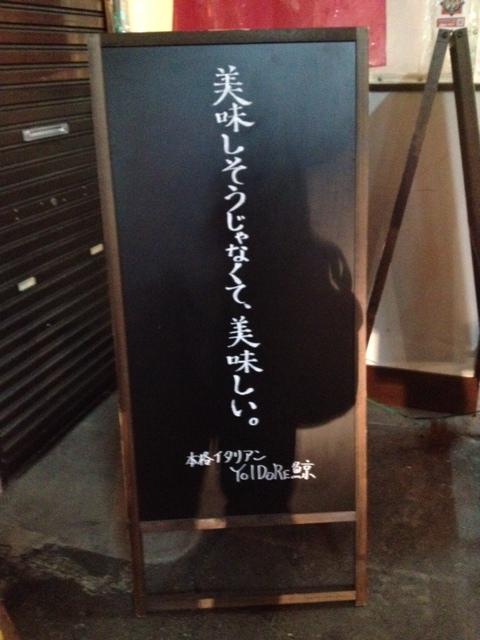 美味しそうじゃなくて、美味しい。
本格イタリアン
YOIDORE鯨